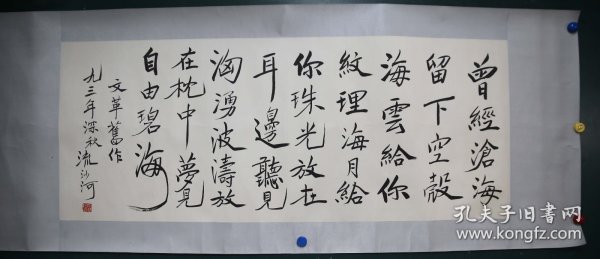 曾經滄海
留下空殼
海雲給你
紋理海月給
你珠光放在
耳邊聽見
洶湧波濤放
在枕中夢見
自由碧海
文革舊作
九三年深秋流沙河
孔夫子旧书网
www.kongfz.com